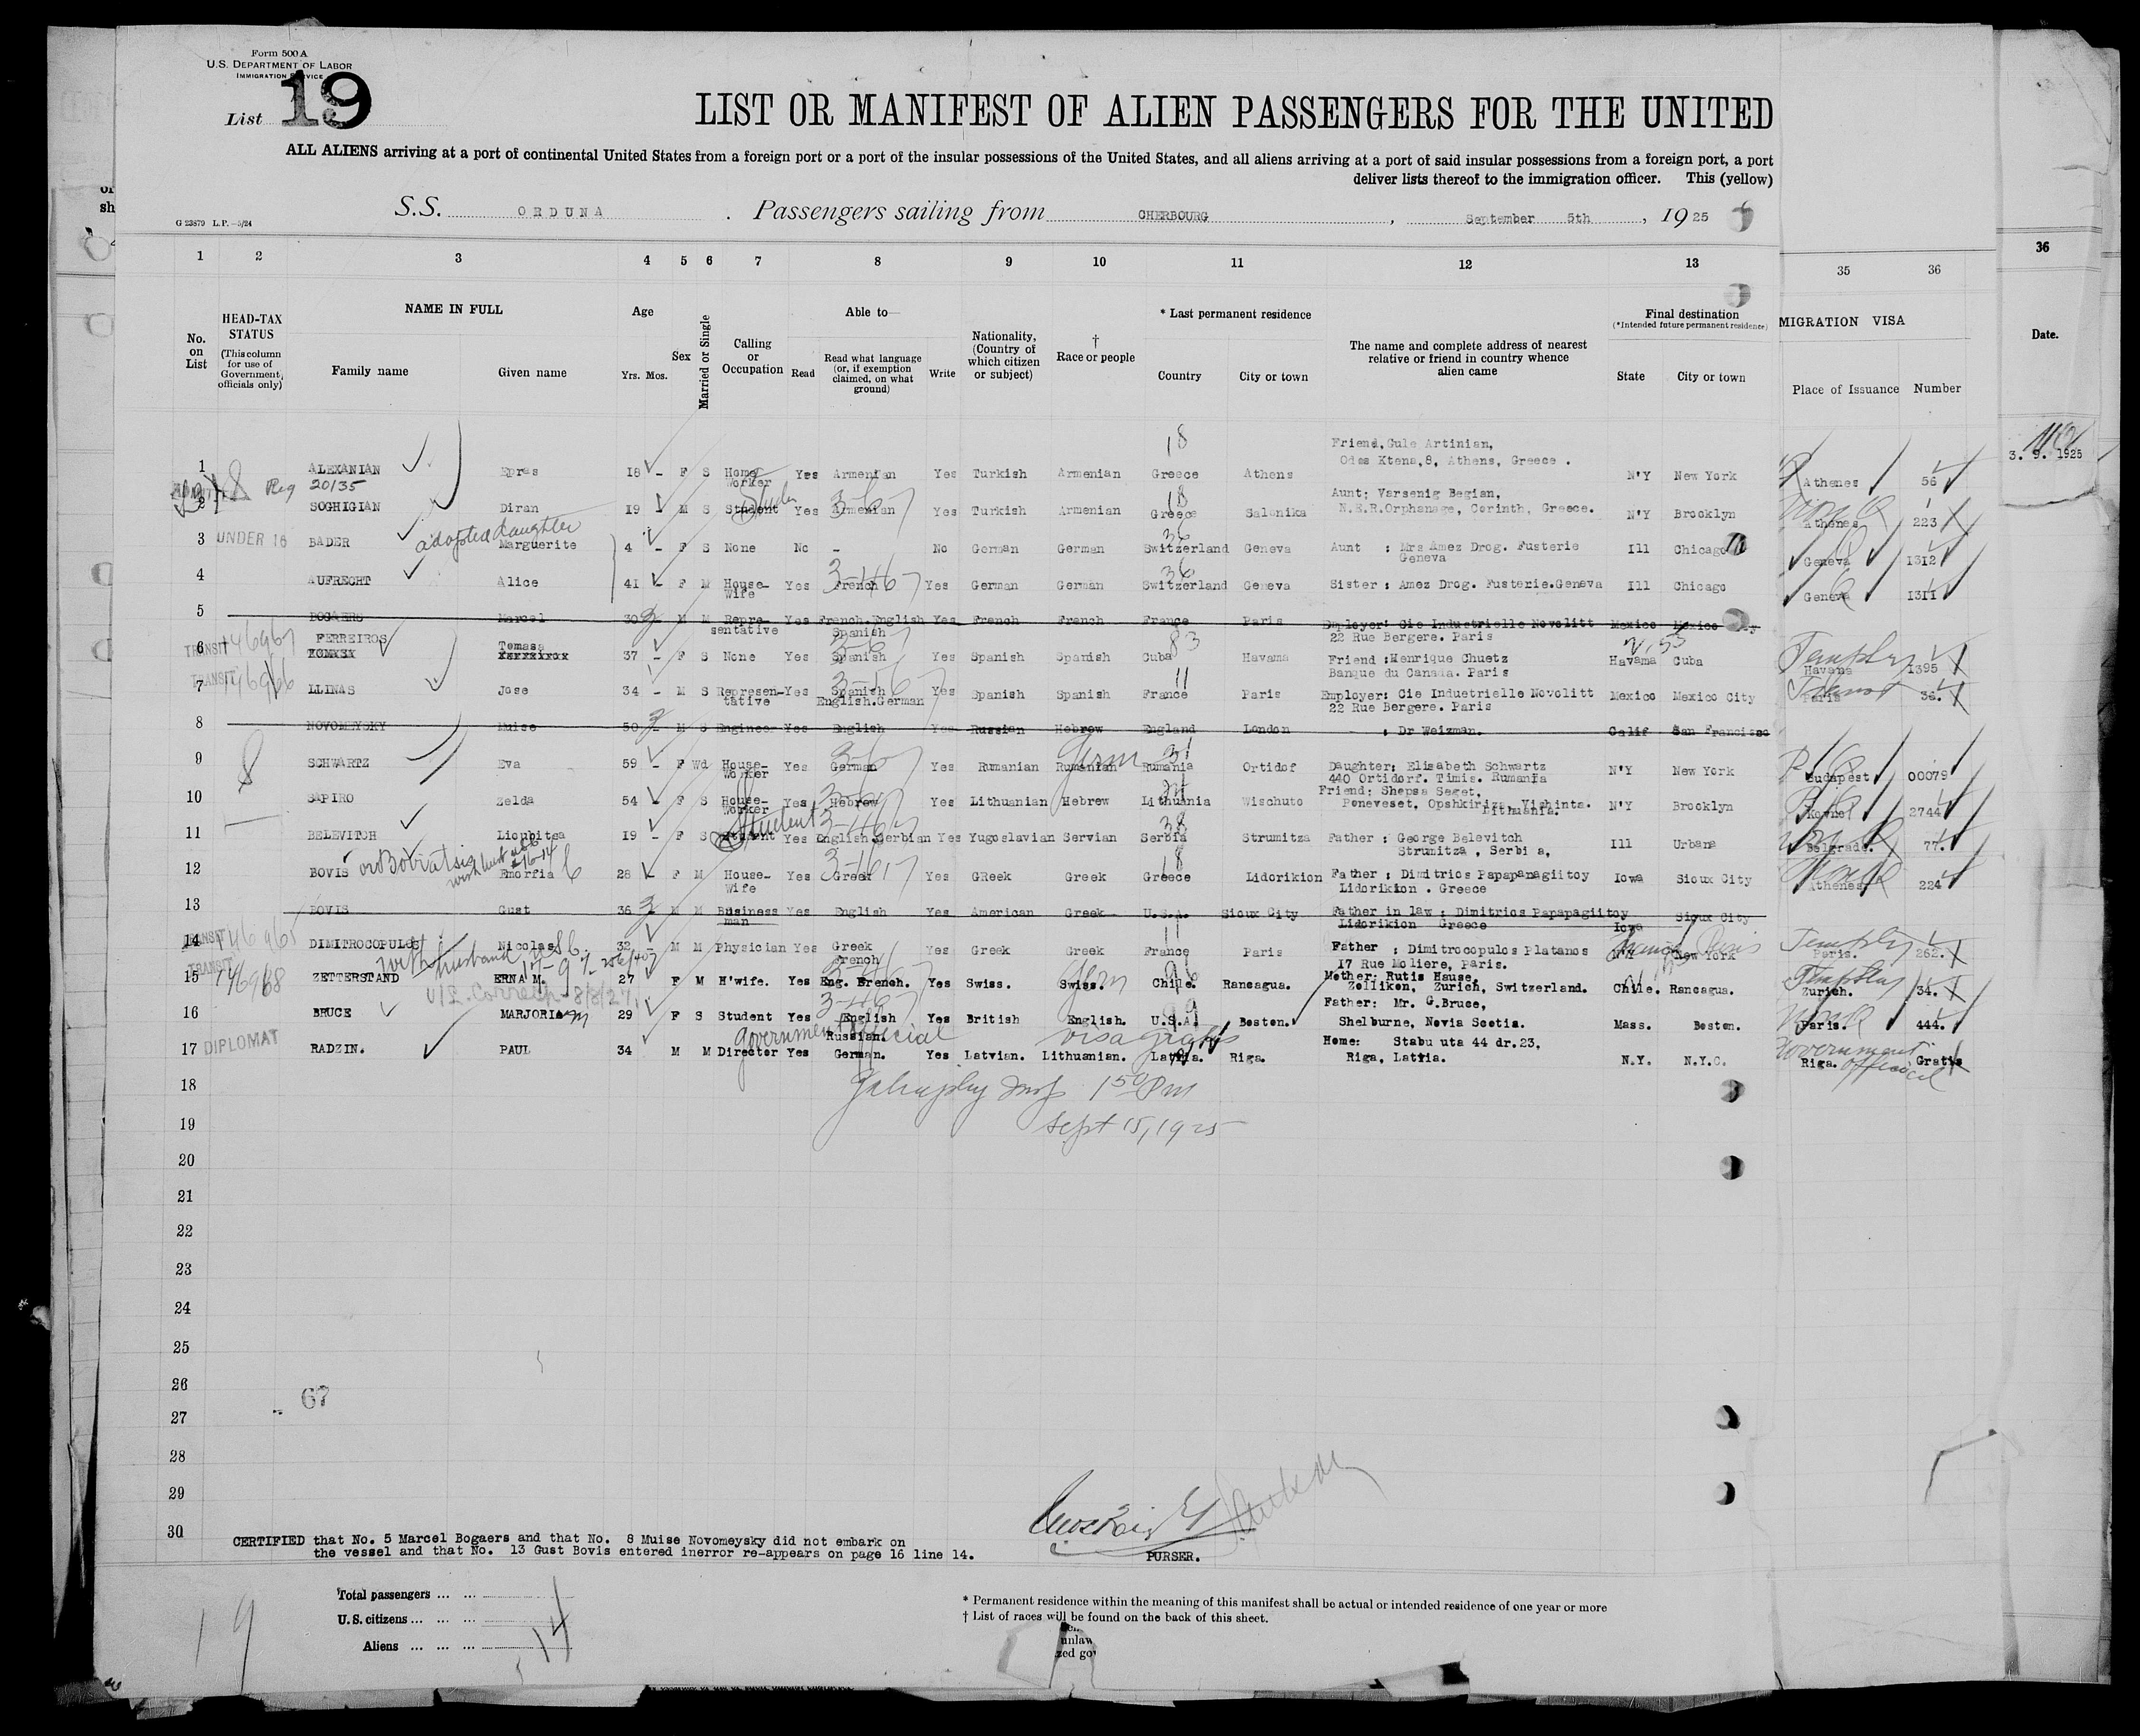 Form 500 A
U.S. DEPARTMENT OF LABOR
IMMIGRATION SERVICE
List 19
LIST OR MANIFEST OF ALIEN PASSENGERS FOR THE UNITED
ALL ALIENS arriving at a port of continental United States from a foreign port or a port of the insular possessions of the United States, and all aliens arriving at a port of said insular possessions from a foreign port, a port
deliver lists thereof to the immigration officer. This (yellow)
S.S. ORDUNA . Passengers sailing from CHERBOURG , September 5th , 1925
G 23879 L.P.—5/24
1 2 3 4 5 6 7 8 9 10 11 12 13 35 36 36
No. on List
HEAD-TAX STATUS (This column for use of Government officials only)
NAME IN FULL
Family name Given name
Age
Yrs. Mos.
Sex
Married or Single
Calling or Occupation
Able to—
Read
Read what language (or, if exemption claimed, on what ground)
Write
Nationality, (Country of which citizen or subject)
† Race or people
* Last permanent residence
Country City or town
The name and complete address of nearest relative or friend in country whence alien came
Final destination
(*Intended future permanent residence)
State City or town
MIGRATION VISA
Place of Issuance Number
Date.
3. 9. 1925
1 ALEXANIAN Epras 18 - F S Home Worker Yes Armenian Yes Turkish Armenian 18 Greece Athens Friend, Gule Artinian, Odos Ktena, 8, Athens, Greece . N'Y New York Athenes 56
Reg 20135
2 SOGHIGIAN Diran 19 M S Student Yes Armenian Yes Turkish Armenian 18 Greece Salonika Aunt; Varsenig Begian, N.E.R.Orphanage, Corinth, Greece. N'Y Brooklyn Athenes 223
3 UNDER 16 BADER adopted daughter Marguerite 4 - F S None No - No German German 36 Switzerland Geneva Aunt : Mrs Amez Drog. Fusterie Geneva Ill Chicago Geneva 1312
4 AUFRECHT Alice 41 - F M House-Wife Yes French Yes German German 36 Switzerland Geneva Sister : Amez Drog. Fusterie.Geneva Ill Chicago Geneva 1311
5 BOGAERS Marcel 30 M M Repre-sentative Yes French.English Spanish Yes French French France Paris Employer: Cie Industrielle Novolitt 22 Rue Bergere. Paris Mexico Mexico City
6 TRANSIT 146967 FERREIROS Tomasa 37 - F S None Yes Spanish Yes Spanish Spanish 83 Cuba Havama Friend :Henrique Chuetz Banque du Canada. Paris Havama Cuba Havana 1395
7 TRANSIT 146966 LLINAS Jose 34 - M S Represen-tative Yes Spanish English.German Yes Spanish Spanish 11 France Paris Employer: Cie Industrielle Novolitt 22 Rue Bergere. Paris Mexico Mexico City Paris 36.
8 NOVOMEYSKY Muise 50 M S Engineer Yes English Yes Russian Hebrew England London : Dr Weizman. Calif San Francisco
9 SCHWARTZ Eva 59 - F Wd House-Worker Yes German Yes Rumanian Rumanian Germ 31 Rumania Ortidof Daughter: Elisabeth Schwartz 440 Ortidorf. Timis. Rumania N'Y New York Budapest 00079
10 SAPIRO Zelda 54 - F S House-Worker Yes Hebrew Yes Lithuanian Hebrew Lithuania Wischuto Friend: Shepsa Seget, Poneveset, Opshkirizs, Vishinta. Lithuania. N'Y Brooklyn Kowno 2744
11 BELEVITCH Lioubitsa 19 - F S Student Yes English Serbian Yes Yugoslavian Servian 38 Serbia Strumitza Father : George Belevitch Strumitza , Serbi a, Ill Urbana Belgrade. 77.
12 BOVIS Emorfia 28 - F M House-Wife Yes Greek Yes GReek Greek 18 Greece Lidorikion Father : Dimitrios Papapanagiitoy Lidorikion . Greece Iowa Sioux City Athenes 224
13 BOVIS Gust 36 M M Business man Yes English Yes American Greek U.S.A. Sioux City Father in law : Dimitrios Papapagiitoy Lidorikion Greece Iowa Sioux City
14 TRANSIT 146965 DIMITROCOPULOS Nicolas 32 - M M Physician Yes Greek French Yes Greek Greek 11 France Paris Father : Dimitrocopulos Platanos 17 Rue Moliere, Paris. N'Y New York France Paris Paris. 262.
with husband
15 TRANSIT 146968 ZETTERSTAND ERNA M. 27 F M H'wife. Yes Eng. French. Yes Swiss. Swiss. Germ Chile. Rancagua. Mother: Rutis Hause, Zollikon, Zurich, Switzerland. Chile. Rancagua. Zurich. 34.
16 BRUCE MARJORIE M 29 F S Student Yes English Yes British English. 99 U.S.A. Boston. Father: Mr. G.Bruce, Shelburne, Novia Scotia. Mass. Boston. Paris. 444.
17 DIPLOMAT RADZIN. PAUL 34 M M Director Government official Yes Russian. German. Yes Latvian. Lithuanian. visa gratis Latvia. Riga. Home: Stabu uta 44 dr.23, Riga, Latvia. N.Y. N.Y.C. Riga. Government official Gratis
18
1 50 Pm
19
Sept 15, 1925
20
21
22
23
24
25
26
67
27
28
29
30
CERTIFIED that No. 5 Marcel Bogaers and that No. 8 Muise Novomeysky did not embark on
the vessel and that No. 13 Gust Bovis entered inerror re-appears on page 16 line 14.
PURSER.
Total passengers ... ...
U.S. citizens ... ... ...
Aliens ... ... ... 14
19
* Permanent residence within the meaning of this manifest shall be actual or intended residence of one year or more
† List of races will be found on the back of this sheet.
unlaw
zed gov